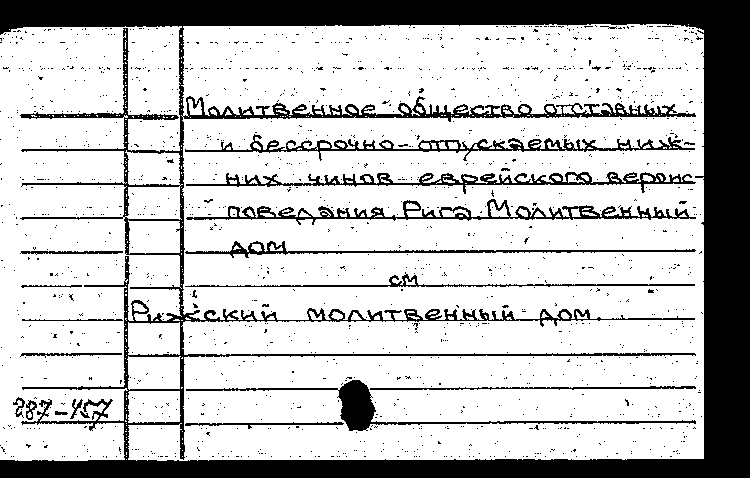 Молитвенное общество отставных
и бессрочно-отпускаемых ниж-
них чинов еврейского вероис-
поведания. Рига. Молитвенный
дом
см
Рижский молитвенный дом.
287-457